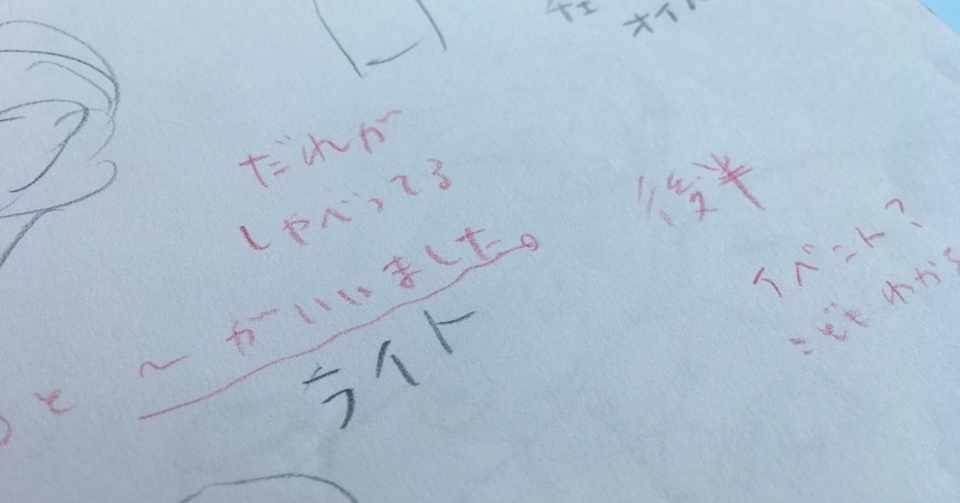 オイル
だれが
しゃべってる
後半
と ～がいいました。
ライト
イベント?
こども わかる